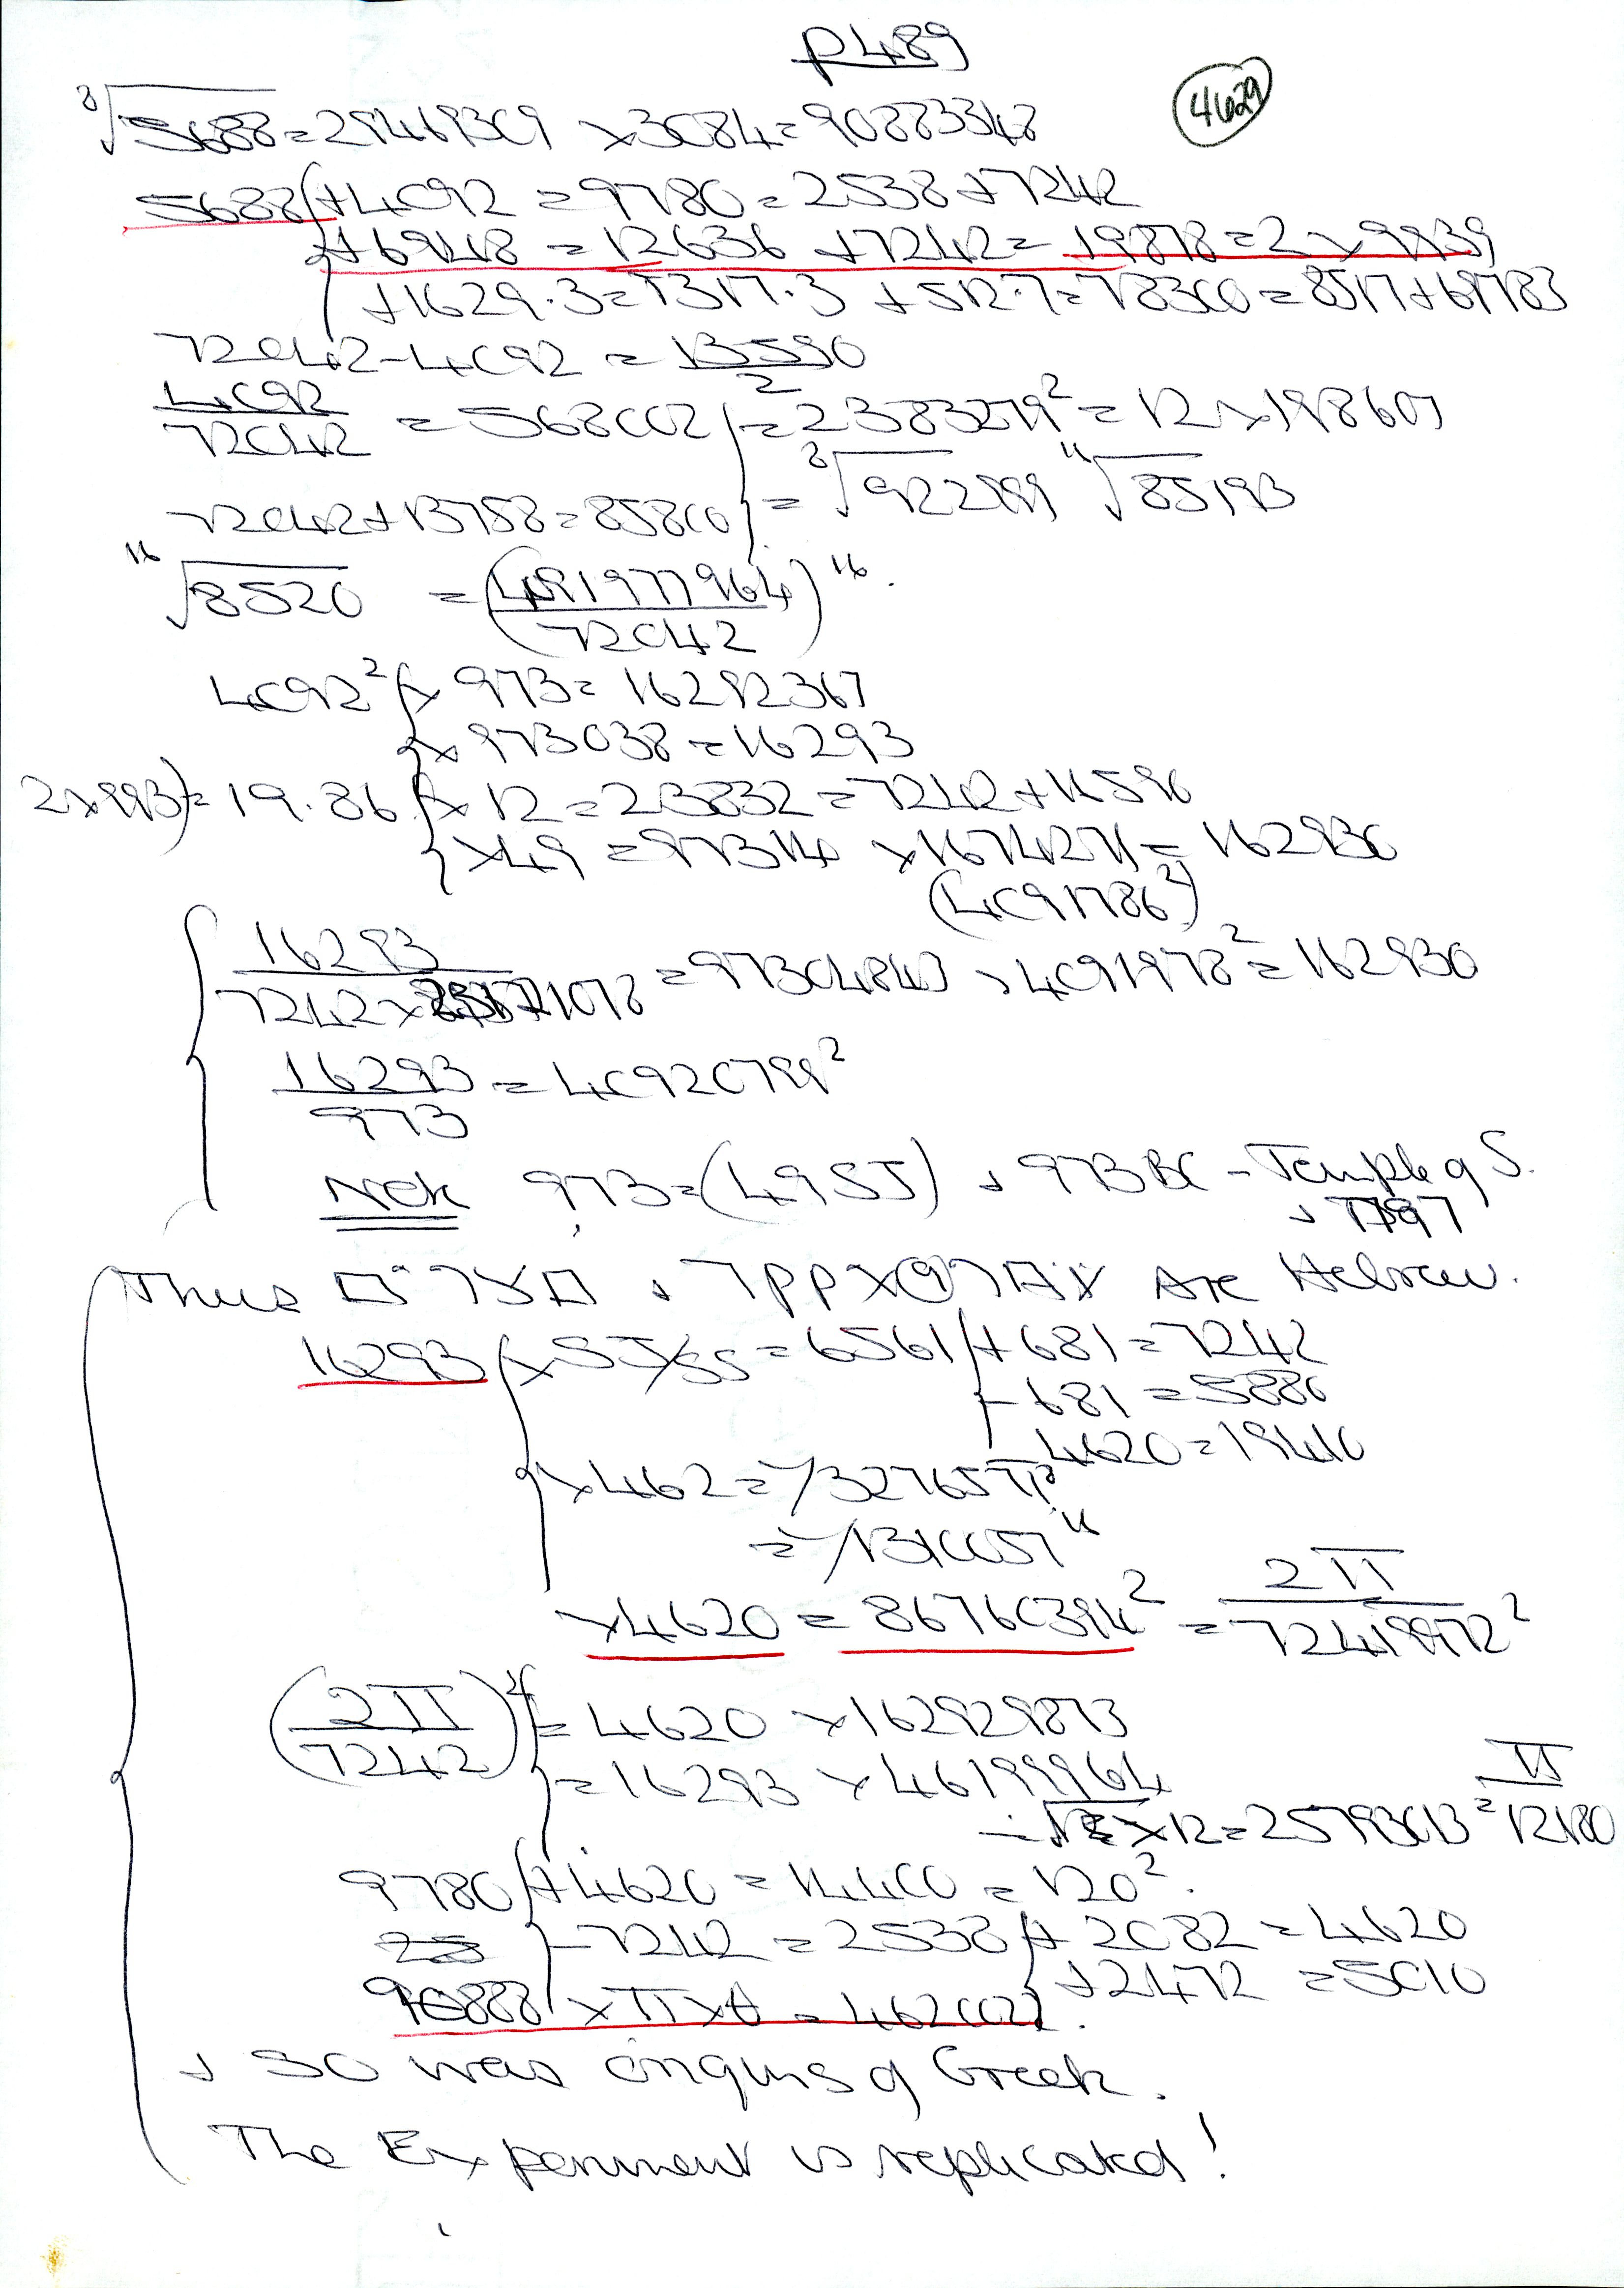 p489
4629
³√5688 = 29469309 × 3084 = 90883348
5688 + 4092 = 9780 = 2538 + 7242
+ 6948 = 12636 + 7242 = 19878 = 2 × 9939
+ 1629.3 = 7317.3 + 512.7 = 78300 = 8517 + 69783
72042 - 4092 = 13590/2
4092/72042 = 568002 = 2383279² = 12 × 198607
72042 + 13758 = 85800 = ³√922999 ¹¹√85193
¹⁶√8520 = (4091977964/72042)¹⁶.
4092² × 973 = 16292367
× 973038 = 16293
2 × 993) = 19.86 × 12 = 23832 = 7242 + 16590
× 49 = 97314 × 1674271 = 162930
(4091786²)
16293/7242 × 1078 = 97304843 × 4091978² = 162930
16293/973 = 40920799²
Note 973 = (49SJ) + 973BC - Temple of S.
Thus Are Hebrew.
16293 × SJ/SS = 6561 + 681 = 7242
- 681 = 5880
- 4620 = 19410
× 462 = 7/32765
= 7/1310057¹⁶
× 4620 = 86760394² = 2π/72419972²
(2π/7242)⁴ = 4620 × 162929873
= 16293 × 46199964
× 12 = 25793013 = π/12180
9780 + 4620 = 14400 = 120².
- 7242 = 2538 + 2082 = 4620
+ 2472 = 5010
× π × = 4620022.
+ so was origins of Greek.
The Experiment is replicated!